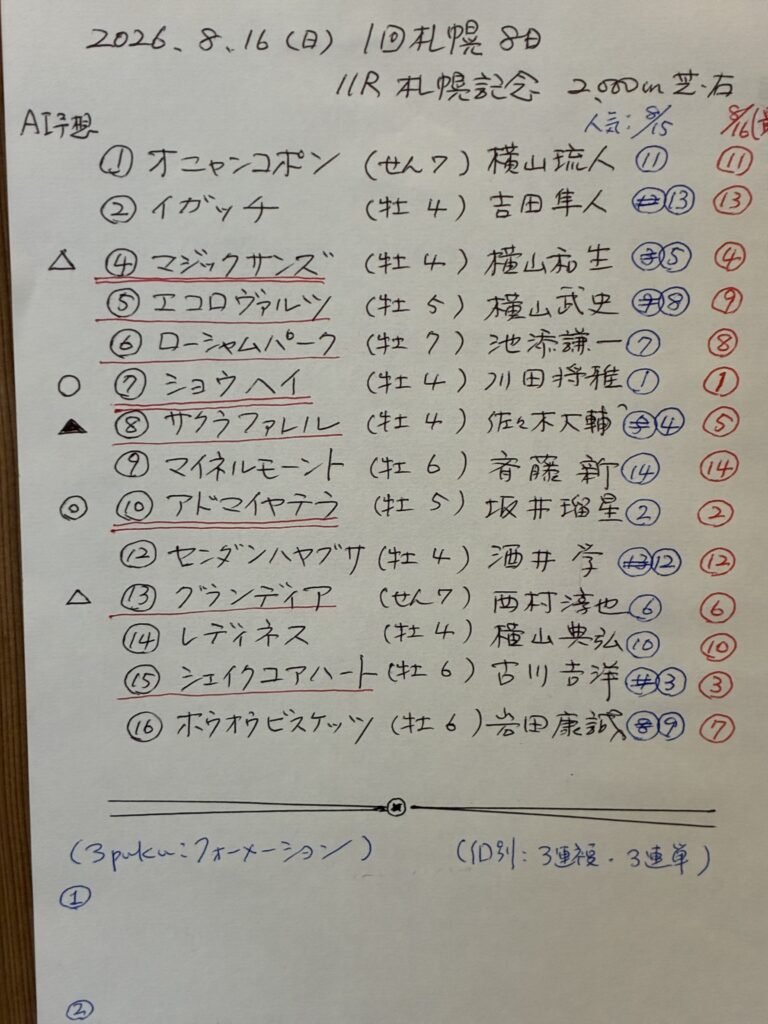 2026.8.16(日) 1回札幌8日
11R 札幌記念 2,000m芝・右
AI予想 人気:8/15 8/16
① オニャンコポン (せん7) 横山琉人 ⑪ ⑪
② イガッチ (牡4) 吉田隼人 ⑬ ⑬
△ ④ マジックサンズ (牡4) 横山和生 ⑤ ④
⑤ エコロヴァルツ (牡5) 横山武史 ⑧ ⑨
⑥ ローシャムパーク (牡7) 池添謙一 ⑦ ⑧
○ ⑦ ショウヘイ (牡4) 川田将雅 ① ①
▲ ⑧ サクラファレル (牡4) 佐々木大輔 ④ ⑤
⑨ マイネルモーント (牡6) 斉藤新 ⑭ ⑭
◎ ⑩ アドマイヤテラ (牡5) 坂井瑠星 ② ②
⑫ センダンハヤブサ (牡4) 酒井学 ⑫ ⑫
△ ⑬ グランディア (せん7) 西村淳也 ⑥ ⑥
⑭ レディネス (牡4) 横山典弘 ⑩ ⑩
⑮ シェイクユアハート (牡6) 古川吉洋 ③ ③
⑯ ホウオウビスケッツ (牡6) 岩田康誠 ⑨ ⑦
(3puku:フォーメーション) (ID別:3連複・3連単)
①
②